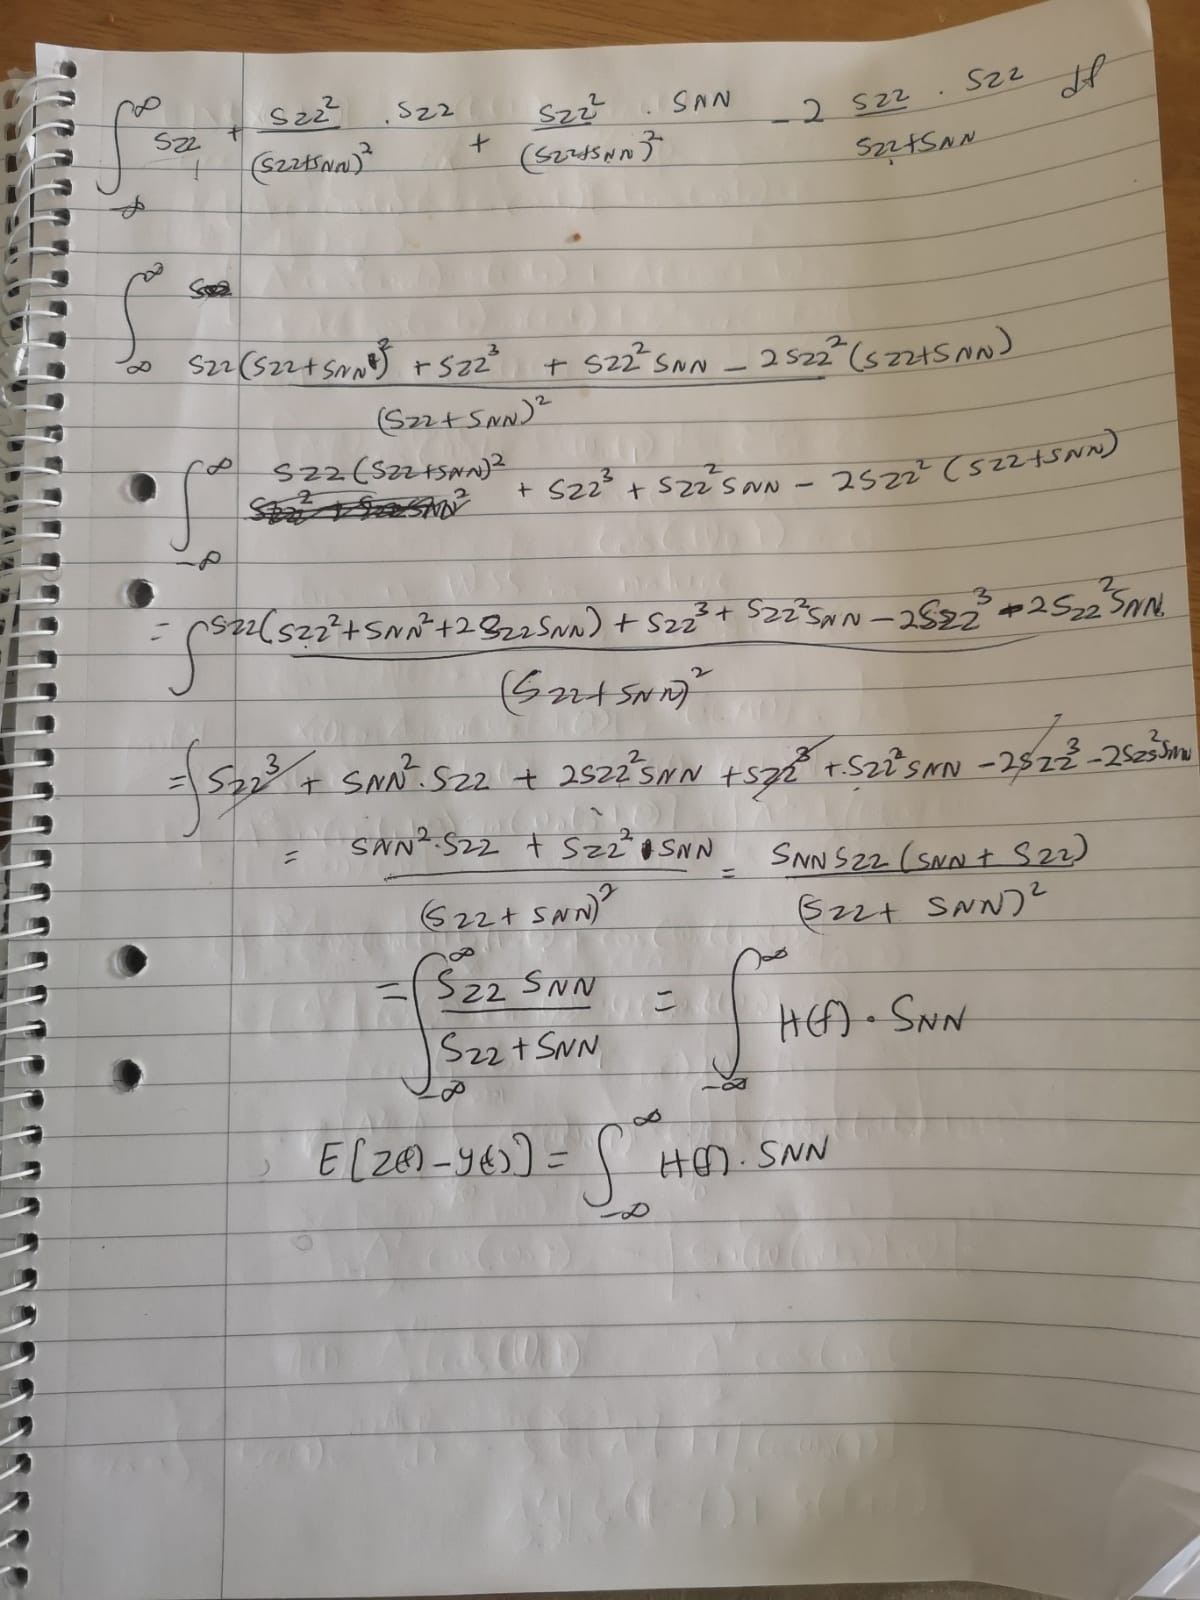 ∫_{-∞}^{∞} Szz + Szz²/(Szz+SNN)² . Szz + Szz²/(Szz+SNN)² . SNN - 2 Szz/(Szz+SNN) . Szz df
∫_{∞}^{∞} (Szz(Szz+SNN)² + Szz³ + Szz² SNN - 2Szz²(Szz+SNN))/(Szz+SNN)²
∫_{-∞}^{∞} Szz(Szz+SNN)² + Szz³ + Szz² SNN - 2Szz²(Szz+SNN)
= ∫ (Szz(Szz²+SNN²+2SzzSNN) + Szz³ + Szz²SNN - 2Szz³ - 2Szz²SNN)/(Szz+SNN)²
= ∫ Szz³ + SNN².Szz + 2Szz²SNN + Szz³ + Szz²SNN - 2Szz³ - 2Szz²SNN
= (SNN².Szz + Szz².SNN)/(Szz+SNN)² = (SNN Szz(SNN + Szz))/(Szz+SNN)²
= ∫_{-∞}^{∞} (Szz SNN)/(Szz+SNN) = ∫_{-∞}^{∞} H(f) . SNN
E[z(t) - y(t)] = ∫_{-∞}^{∞} H(f) . SNN